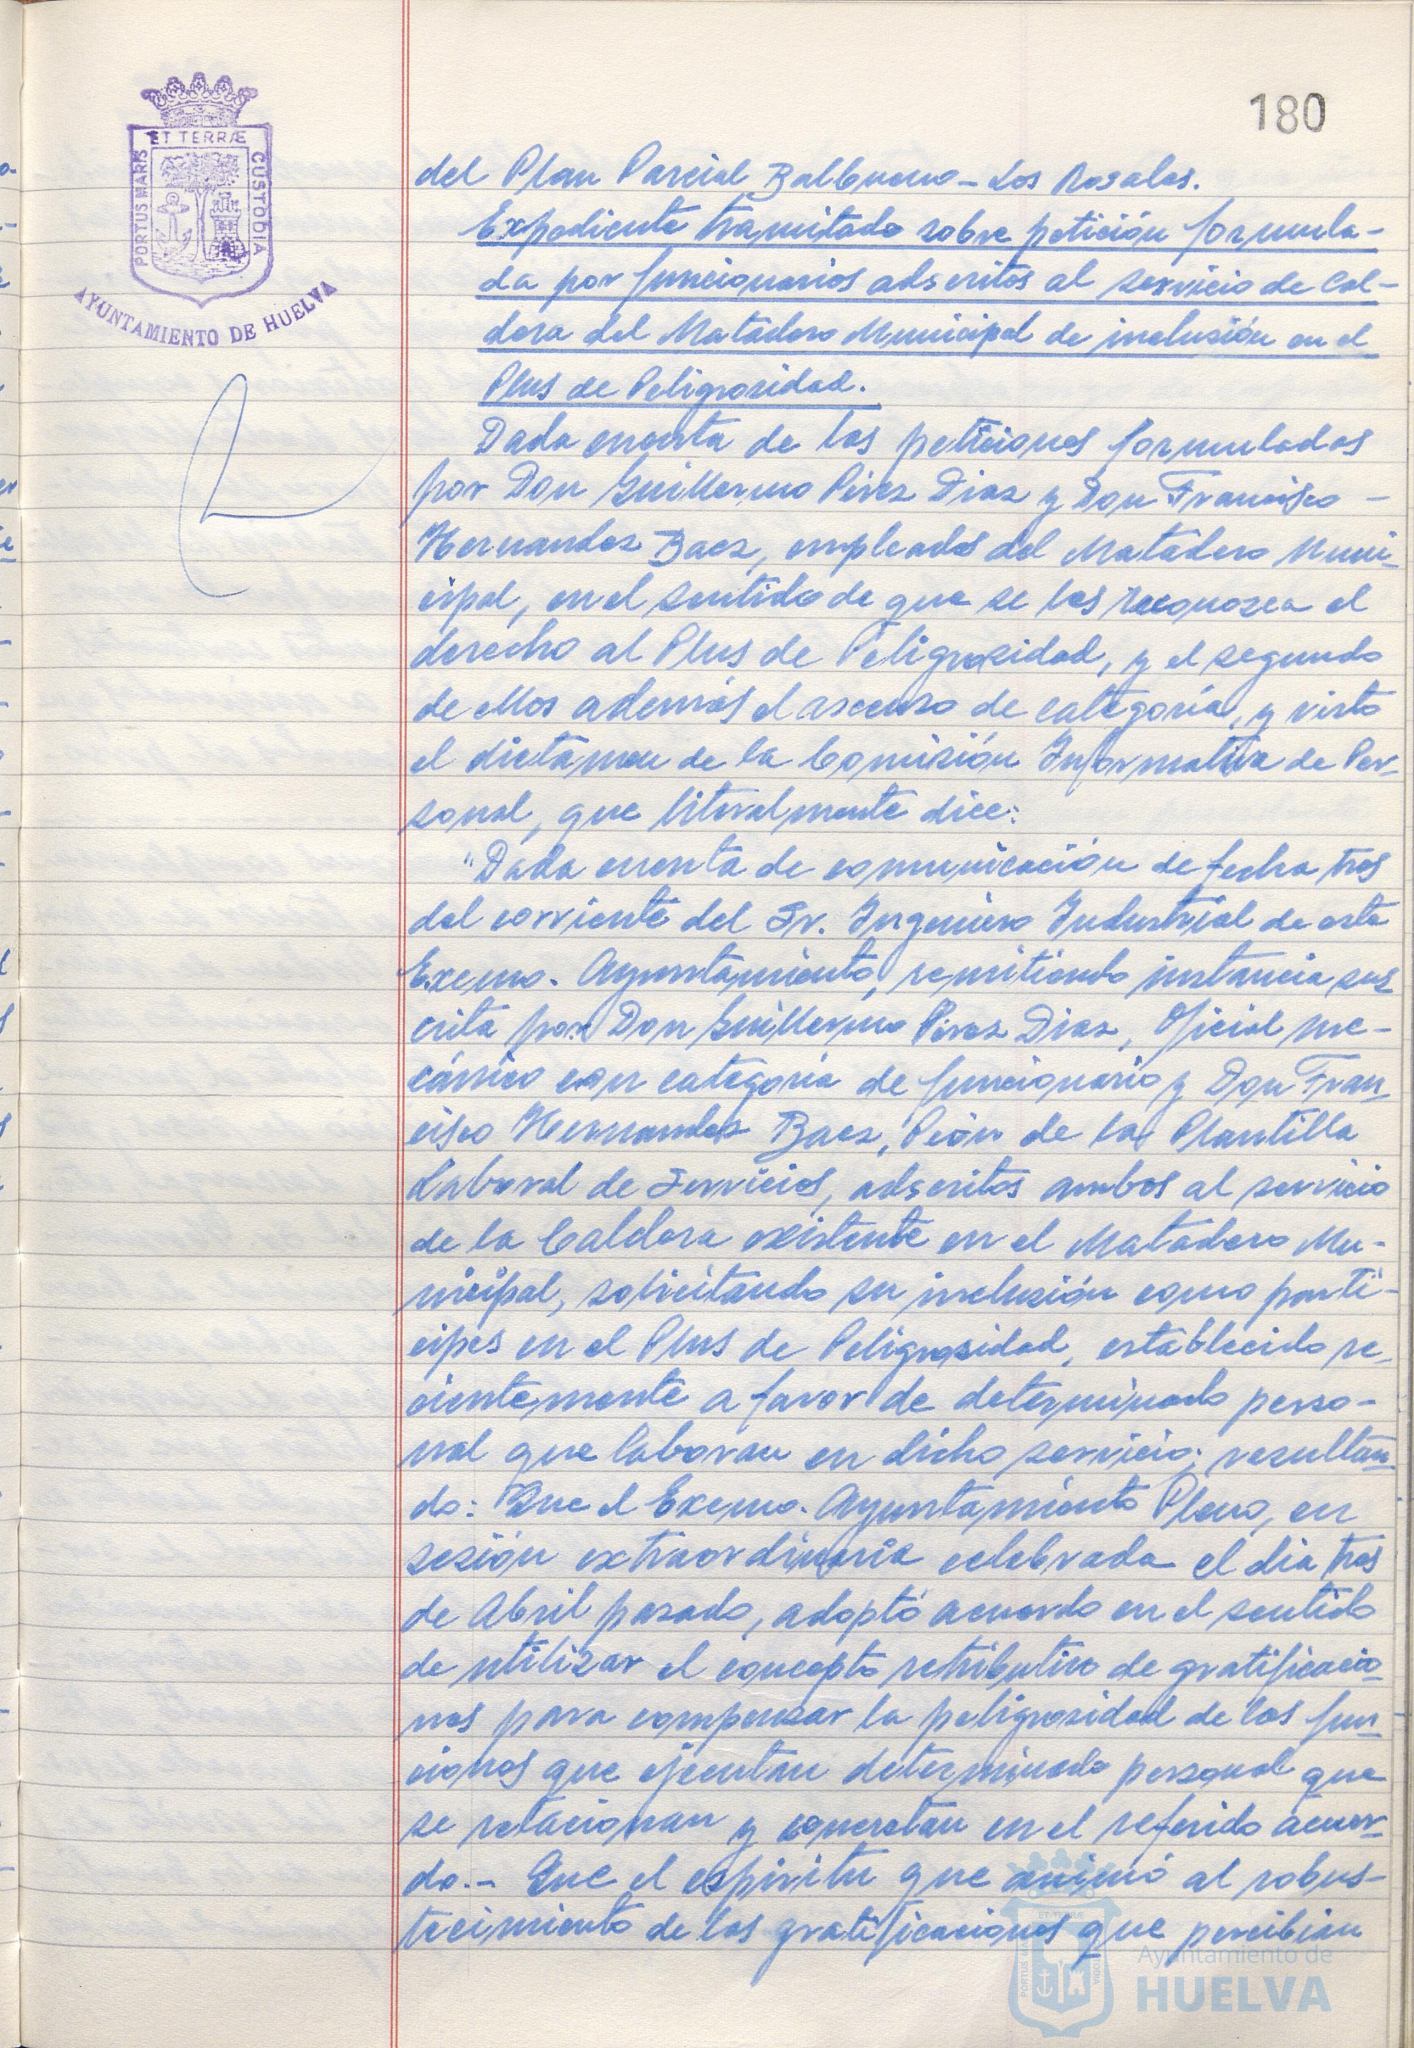 180
ET TERRÆ
PORTUS MARIS
CUSTODIA
AYUNTAMIENTO DE HUELVA
del Plan Parcial Balbueno - Los Rosales.
Expediente tramitado sobre petición formula-
da por funcionarios adscritos al servicio de Cal-
dera del Matadero Municipal de inclusión en el
Plus de Peligrosidad.
Dada cuenta de las peticiones formuladas
por Don Guillermo Pérez Diaz y Don Francisco -
Hernandez Baez, empleados del Matadero Muni-
cipal, en el sentido de que se les reconozca el
derecho al Plus de Peligrosidad, y el segundo
de ellos además el ascenso de categoría, y visto
el dictamen de la Comisión Informativa de Per-
sonal, que literalmente dice:
"Dada cuenta de comunicación de fecha tres
del corriente del Sr. Ingeniero Industrial de este
Excmo. Ayuntamiento, remitiendo instancia sus
crita por Don Guillermo Pérez Diaz, Oficial me-
cánico con categoría de funcionario y Don Fran-
cisco Hernandez Baez, Peón de la Plantilla
Laboral de Servicios, adscritos ambos al servicio
de la Caldera existente en el Matadero Mu-
nicipal, solicitando su inclusión como partí-
cipes en el Plus de Peligrosidad, establecido re-
cientemente a favor de determinado perso-
nal que laboran en dicho servicio; resultan-
do: Que el Excmo. Ayuntamiento Pleno, en
sesión extraordinaria celebrada el dia tres
de Abril pasado, adoptó acuerdo en el sentido
de utilizar el concepto retributivo de gratificacio-
nes para compensar la peligrosidad de las fun-
ciones que ejecutan determinado personal que
se relacionan y concretan en el referido acuer-
do.- Que el espíritu que animó al robus-
tecimiento de las gratificaciones que percibian
Ayuntamiento de
HUELVA